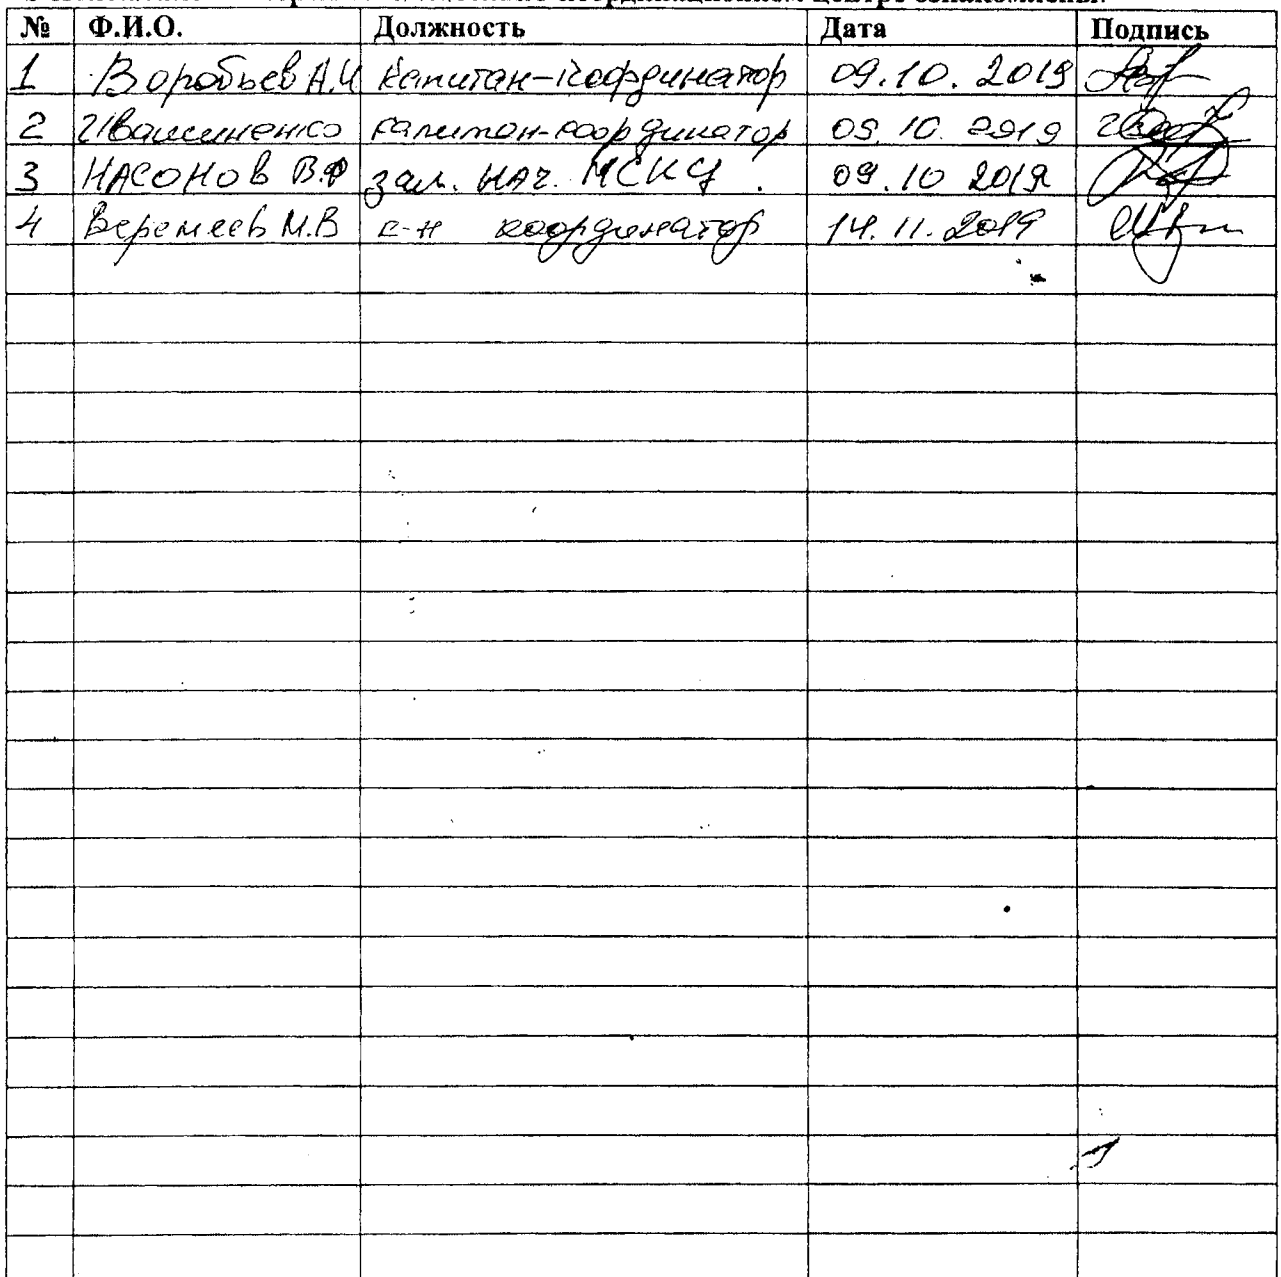 координационном центре ознакомлены:
№ Ф.И.О. Должность Дата Подпись
1 Воробьев А.И капитан-координатор 09.10. 2019
2 Ивашиненко капитан-координатор 09.10. 2019
3 НАСОНОВ В.Ф зам. НАч. МСКЦ. 09.10 2019
4 Веремеев М.В к-н координатор 14.11.2019